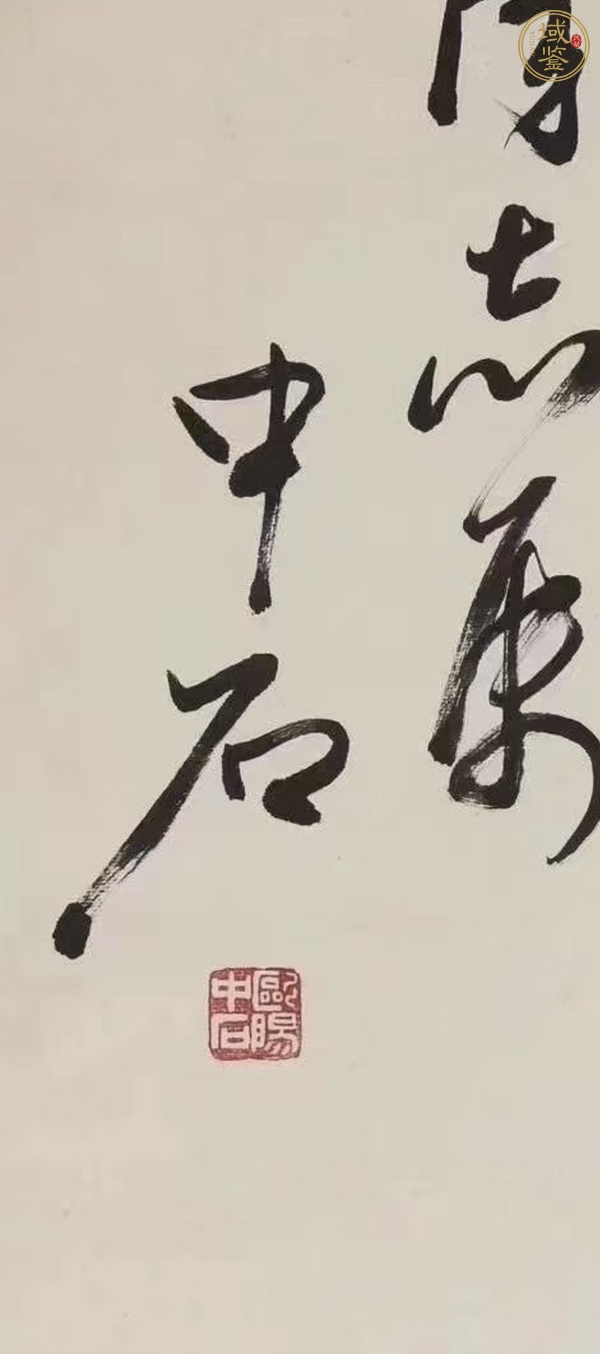 志属
中石
歐陽
中石
域鉴